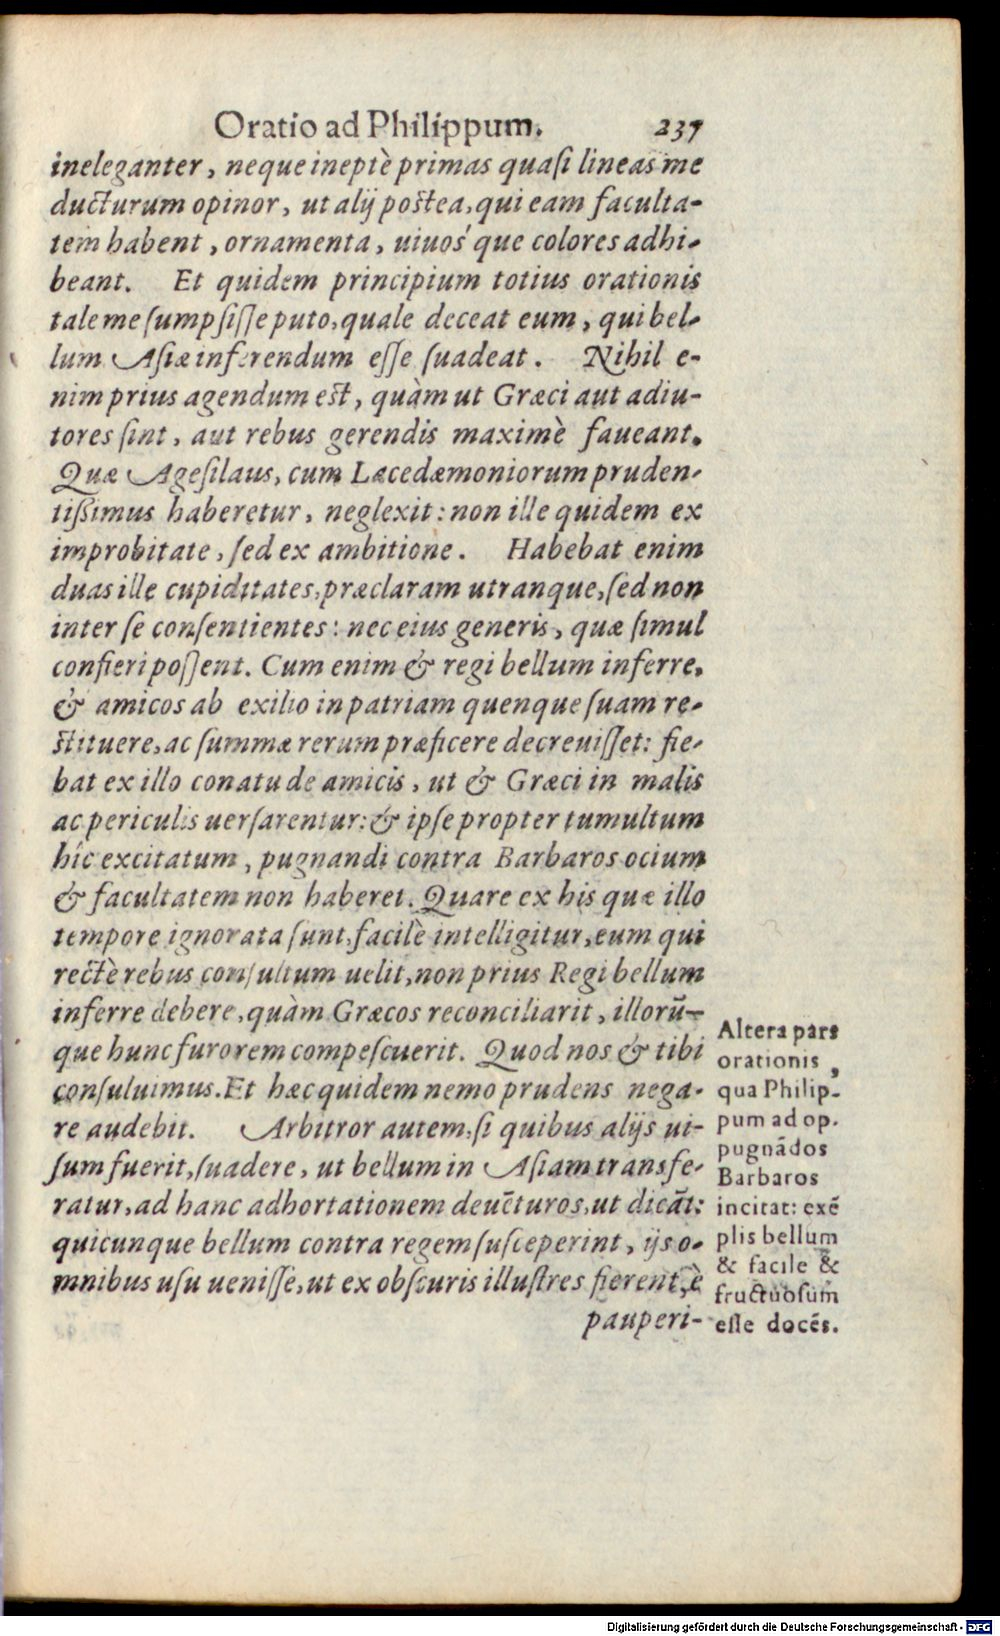 Oratio ad Philippum. 237
ineleganter, neque ineptè primas quaſi lineas me
ducturum opinor, ut alij poſtea, qui eam faculta-
tem habent, ornamenta, uiuos'que colores adhi-
beant. Et quidem principium totius orationis
tale me ſumpſiſſe puto, quale deceat eum, qui bel-
lum Aſiæ inferendum eſſe ſuadeat. Nihil e-
nim prius agendum eſt, quàm ut Græci aut adiu-
tores ſint, aut rebus gerendis maximè faueant.
Quæ Ageſilaus, cum Lacedæmoniorum pruden-
tiſsimus haberetur, neglexit: non ille quidem ex
improbitate, ſed ex ambitione. Habebat enim
duas ille cupiditates, præclaram utranque, ſed non
inter ſe conſentientes: nec eius generis, quæ ſimul
confieri poſſent. Cum enim & regi bellum inferre,
& amicos ab exilio in patriam quenque ſuam re-
ſtituere, ac ſummæ rerum præficere decreuiſſet: fie-
bat ex illo conatu de amicis, ut & Græci in malis
ac periculis uerſarentur: & ipſe propter tumultum
hîc excitatum, pugnandi contra Barbaros ocium
& facultatem non haberet. Quare ex his quæ illo
tempore ignorata ſunt, facilè intelligitur, eum qui
rectè rebus conſultum uelit, non prius Regi bellum
inferre debere, quàm Græcos reconciliarit, illorū-
que hunc furorem compeſcuerit. Quod nos & tibi
conſuluimus. Et hæc quidem nemo prudens nega-
re audebit. Arbitror autem, ſi quibus alijs ui-
ſum fuerit, ſuadere, ut bellum in Aſiam transfe-
ratur, ad hanc adhortationem deuēturos, ut dicāt:
quicunque bellum contra regem ſuſceperint, ijs o-
mnibus uſu ueniſſe, ut ex obſcuris illuſtres fierent, è
pauperi-
Altera pars
orationis,
qua Philip-
pum ad op-
pugnādos
Barbaros
incitat: exē
plis bellum
& facile &
fructuoſum
eſſe docēs.
Digitalisierung gefördert durch die Deutsche Forschungsgemeinschaft - DFG